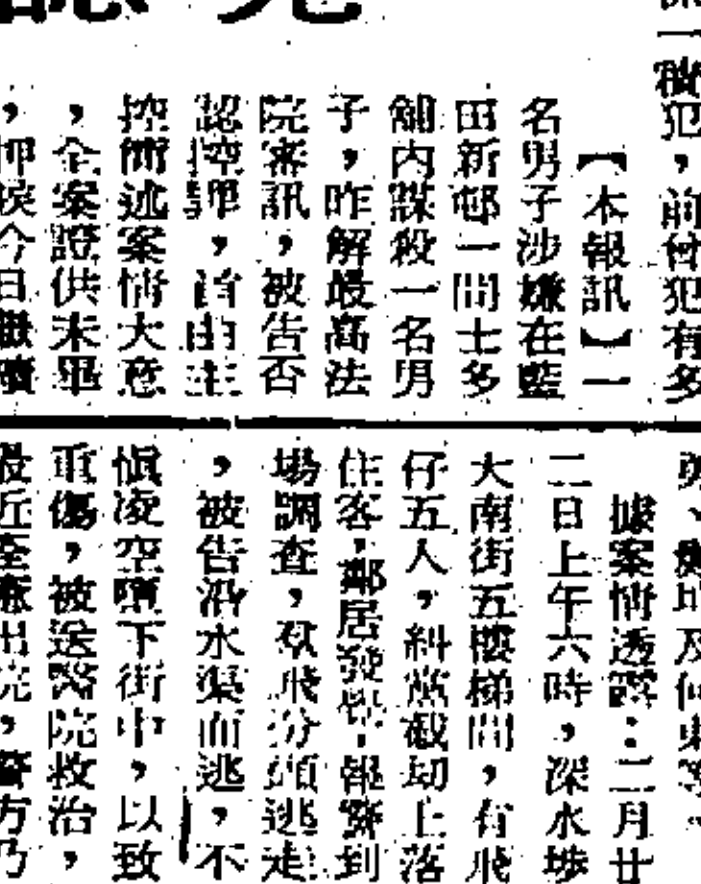 積犯，前曾犯有多
【本報訊】一
名男子涉嫌在藍
田新邨一間士多
舖內謀殺一名男
子，昨解最高法
院審訊，被告否
認控罪，首由主
控簡述案情大意
，全案證供未畢
，押候今日繼續
及何東等。
據案情透露：二月廿
二日上午六時，深水埗
大南街五樓梯間，有飛
仔五人，糾黨截劫上落
住客，鄰居發覺，報警到
場調查，羣飛分頭逃走
，被告沿水渠而逃，不
慎凌空墮下街中，以致
重傷，被送醫院救治，
最近痊癒出院，警方乃